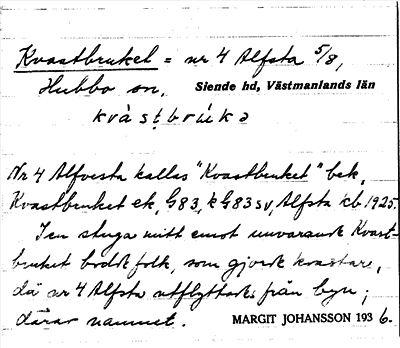 Kvastbruket = nr 4 Alfsta 5/8,
Hubbo sn, Siende hd, Västmanlands län
kvàsṭbrúkə
Nr 4 Alfvesta kallas "Kvastbruket" bek,
Kvastbruket ek, G83, k G83 sv, Alfsta kb 1925.
I en stuga mitt emot nuvarande Kvast-
bruket bodde folk, som gjorde kvastare,
då nr 4 Alfsta utflyttade från byn;
därav namnet. MARGIT JOHANSSON 1936.